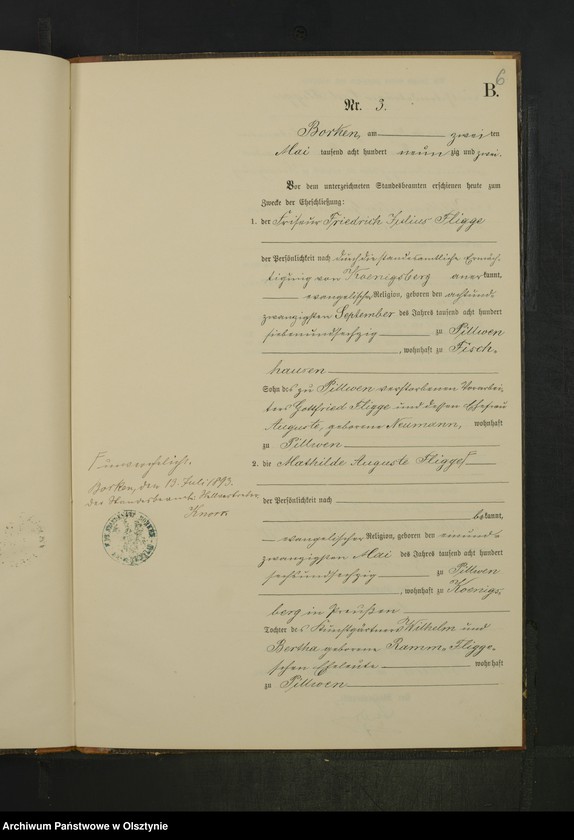 6
B.
Nr. 3.
Borken, am zwei ten
Mai tausend acht hundert neunzig und zwei.
Vor dem unterzeichneten Standesbeamten erschienen heute zum
Zwecke der Eheschließung:
1. der Friseur Friedrich Julius Fligge
der Persönlichkeit nach durch die standesamtliche Ermäch-
tigung von Koenigsberg anerkannt,
evangelischer Religion, geboren den achtund-
zwanzigsten September des Jahres tausend acht hundert
siebenundsechzig zu Pillwen
, wohnhaft zu Fisch-
hausen
Sohn des zu Pillwen verstorbenen Vorarbei-
ters Gottfried Fligge und dessen Ehefrau
Auguste, geborene Neumann, wohnhaft
zu Pillwen
2. die Mathilde Auguste Fligge
der Persönlichkeit nach
bekannt,
evangelischer Religion, geboren den einund-
zwanzigsten Mai des Jahres tausend acht hundert
sechsundsechzig zu Pillwen
, wohnhaft zu Koenigs-
berg in Preußen
Tochter des Kunstgärtners Wilhelm und
Bertha geborene Ramm-Fligge-
schen Eheleute wohnhaft
zu Pillwen
Γ unverehelicht.
Borken, den 13. Juli 1893.
Der Standesbeamte Stellvertreter
Knorr
Archiwum Państwowe w Olsztynie